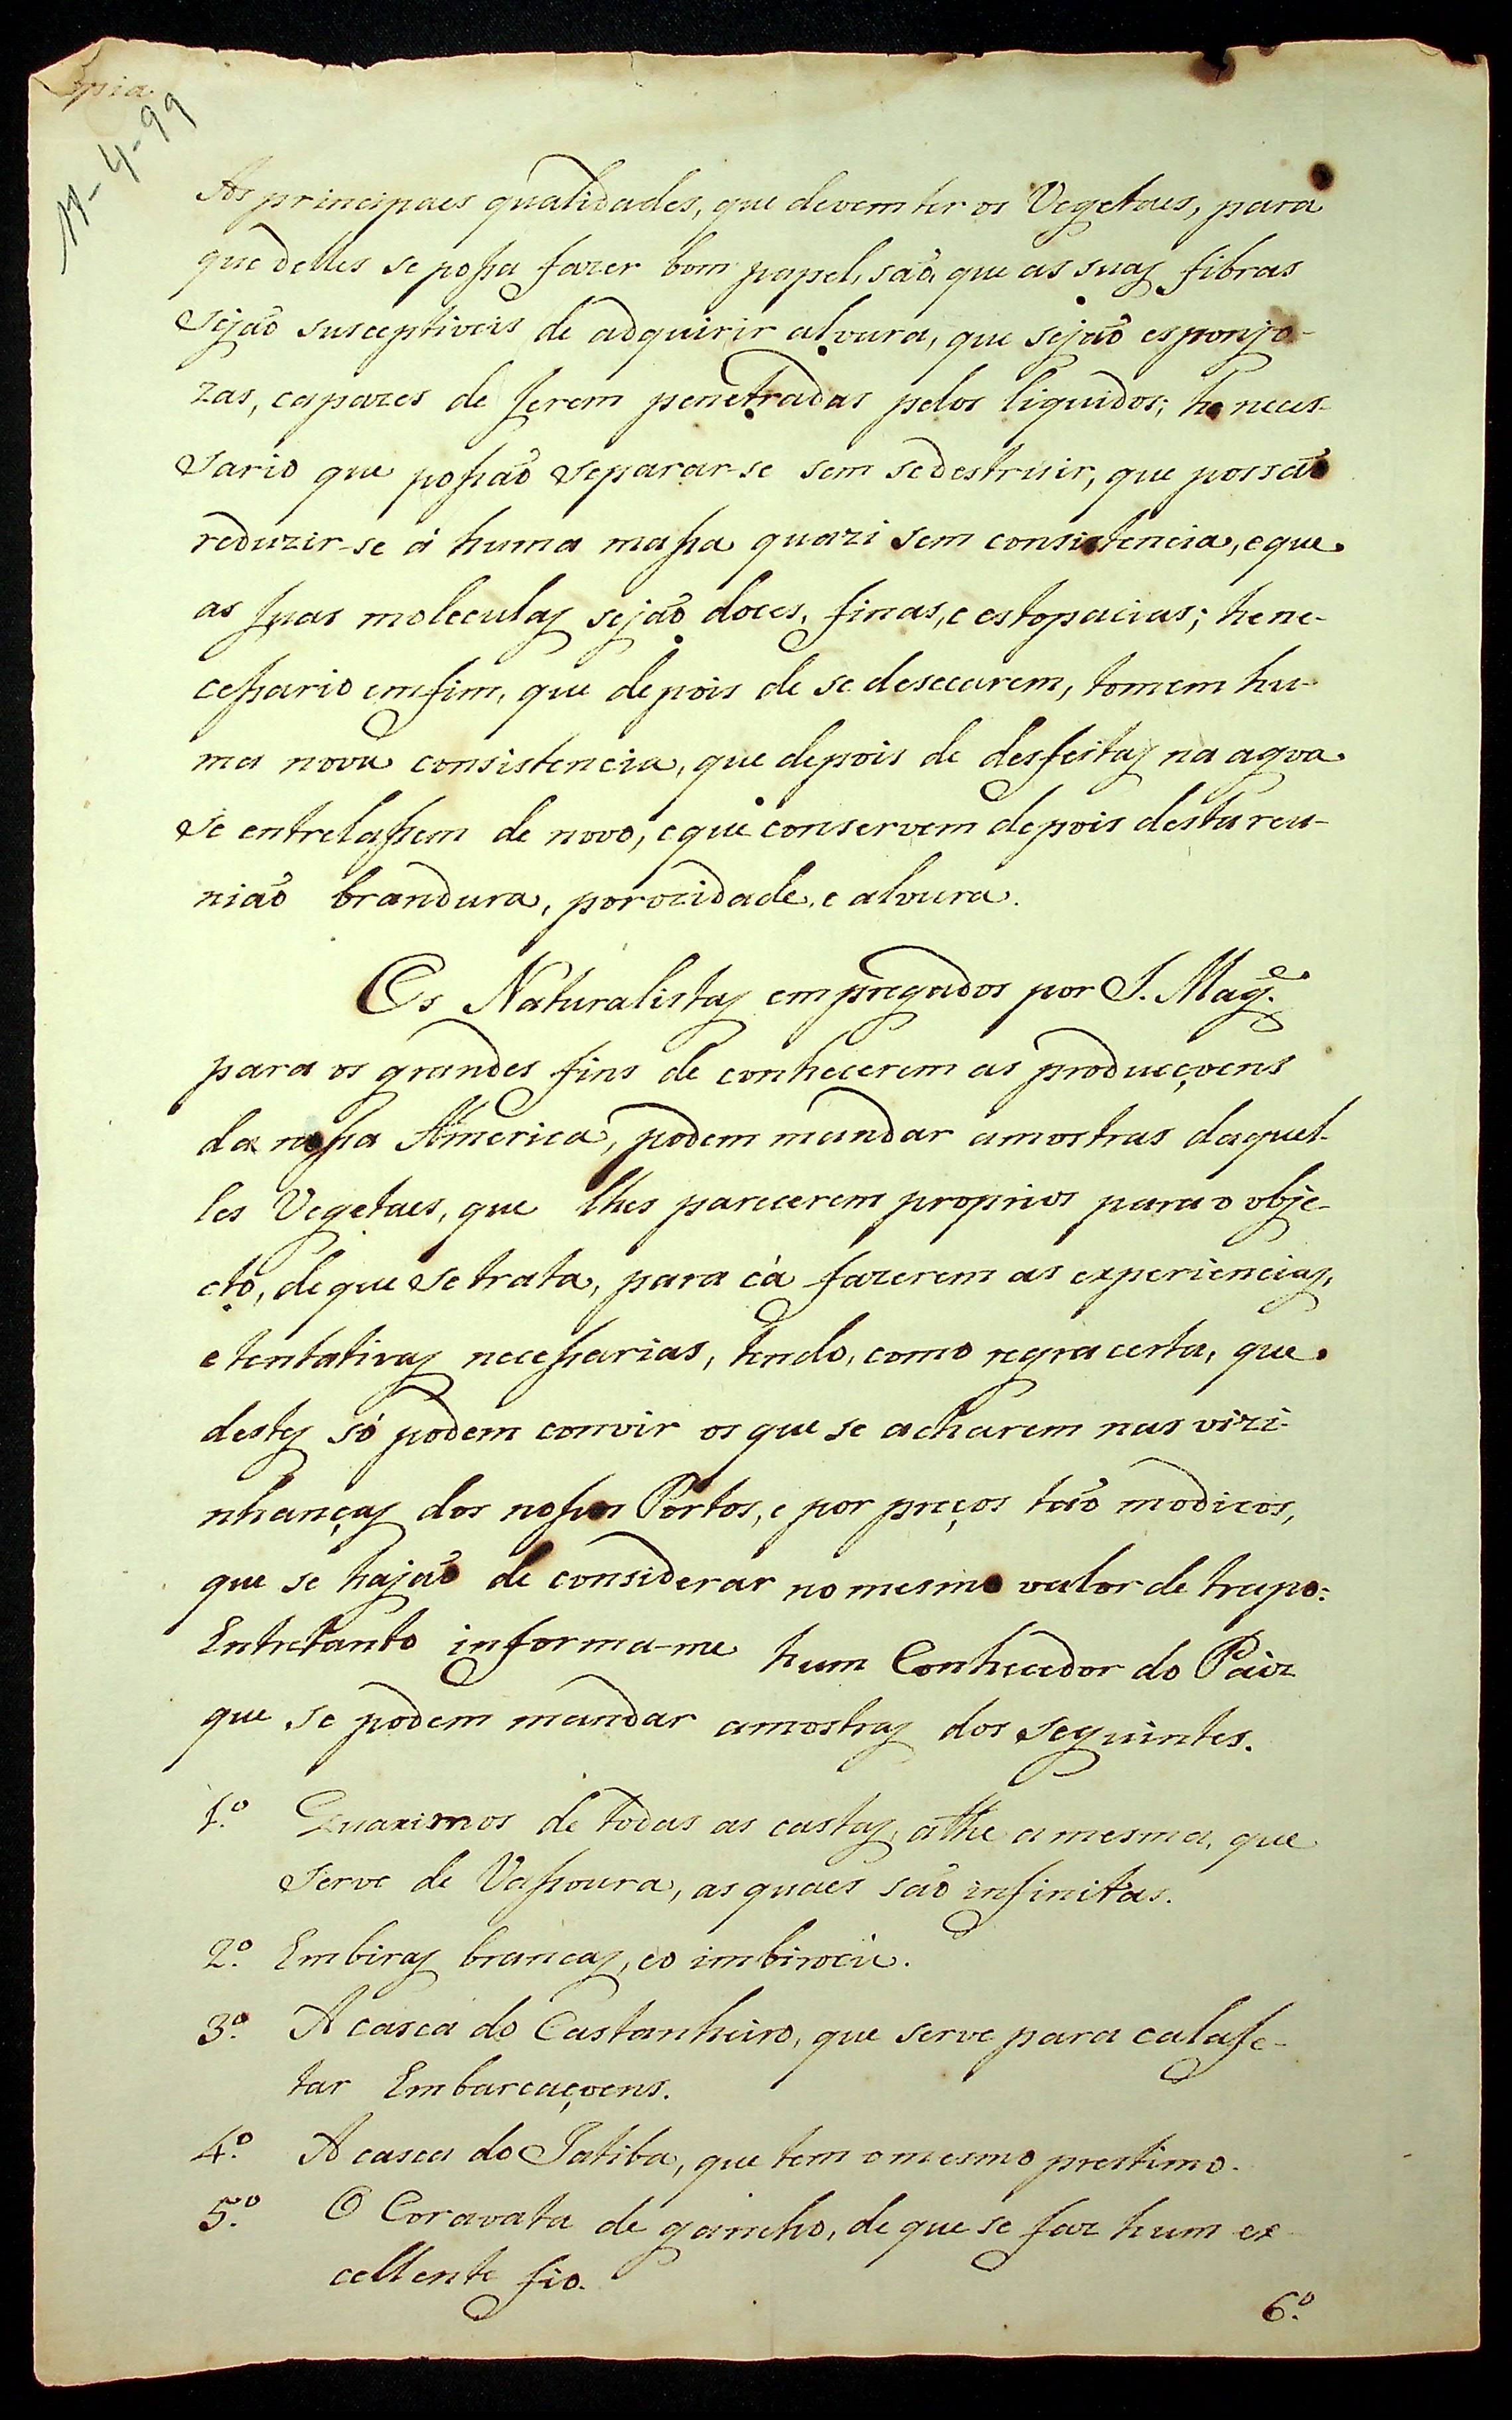 Copia
11-4-99
As principaes qualidades, que devem ter os Vegetaes, para
que delles se possa fazer bom papel, são, que as suas fibras
sejaõ susceptiveis de adquirir alvura, que sejaõ esponjo-
zas, capazes de serem penetradas pelos liquidos; he neces-
sario que possaõ separar-se sem se destruir, que possaõ
reduzir-se á huma massa quazi sem consistencia, e que
as suas moleculas sejaõ doces, finas, e estopacias; he ne-
cessario emfim, que depois de se desecarem, tomem hu-
ma nova consistencia, que depois de desfeitas na agoa
se entrelassem de novo, e que conservem depois desta reu-
niaõ brandura, porozidade, e alvura.
Os Naturalistas empregados por S. Mag.e
para os grandes fins de conhecerem as producçoens
da nossa America, podem mandar amostras daquel-
les Vegetaes, que lhes parecerem proprios para o obje-
cto, de que se trata, para cá fazerem as experiencias,
e tentativas necessarias, tendo, como regra certa, que
destes só podem convir os que se acharem nas vizi-
nhanças dos nossos Portos, e por preços taõ modicos,
que se hajaõ de considerar no mesmo valor de trapo:
Entretanto informa-me hum Conhecedor do Paiz
que se podem mandar amostras dos seguintes.
1.º Guaximos de todas as castas, athe a mesma, que
serve de Vassoura, as quaes saõ infinitas.
2.º Embiras brancas, e o imbirocú.
3.º A casca do Castanheiro, que serve para calafe-
tar Embarcaçoens.
4.º A casca do Jatiba, que tem o mesmo prestimo.
5.º O Coravata de gancho, de que se faz hum ex-
cellente fio.
6.º